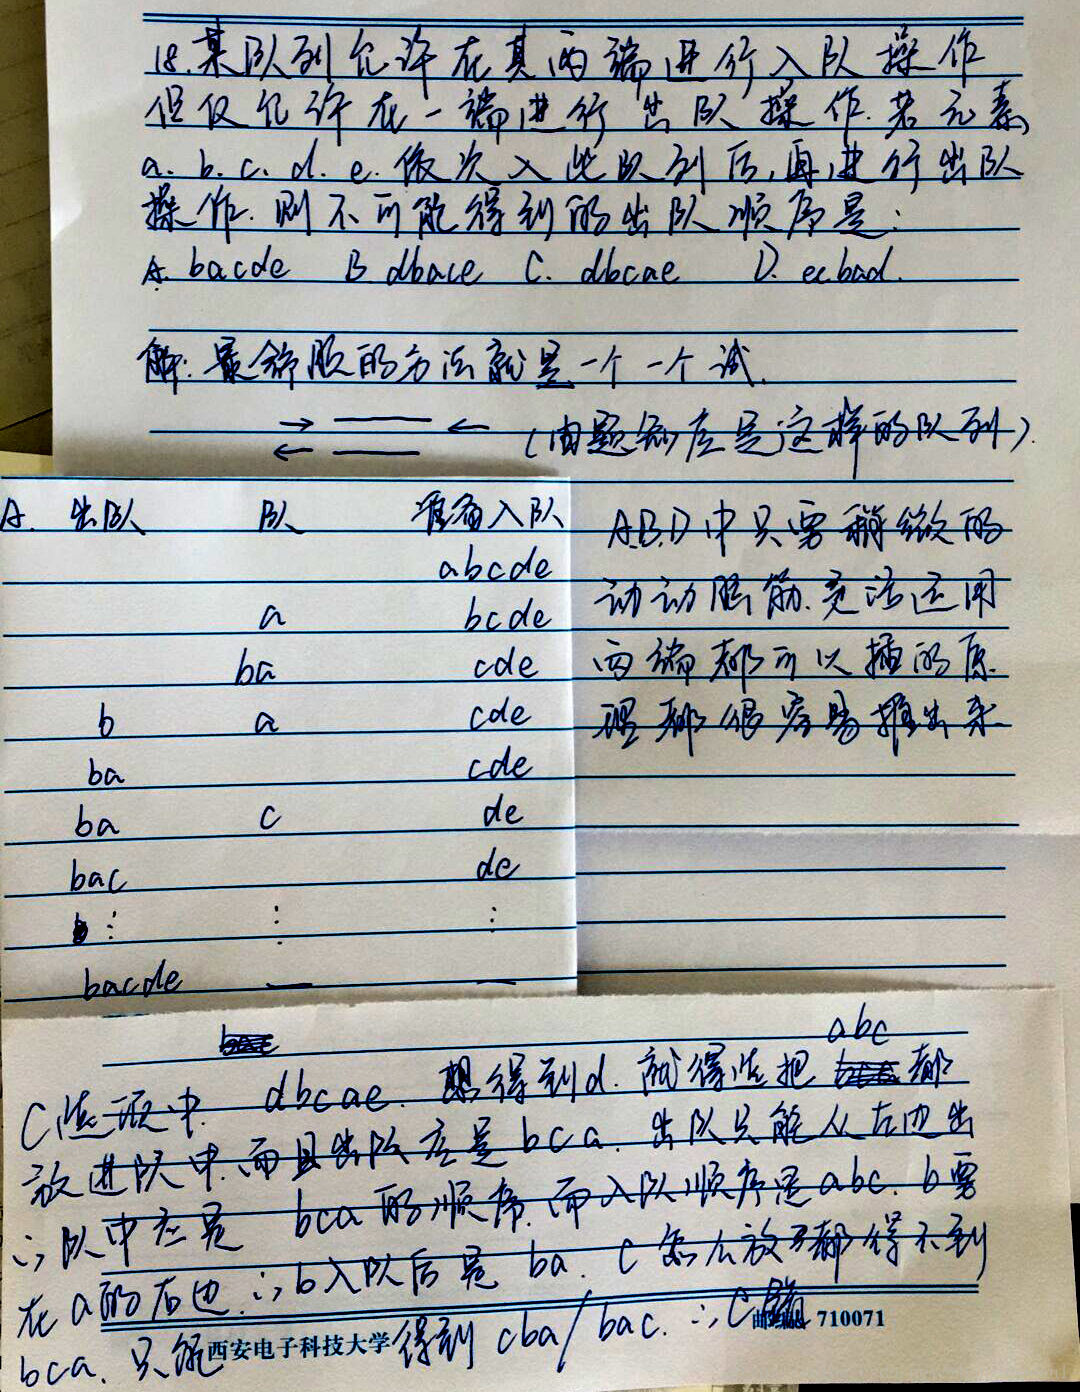 18.某队列允许在其两端进行入队操作
但仅允许在一端进行出队操作.若元素
a.b.c.d.e.依次入此队列后,再进行出队
操作.则不可能得到的出队顺序是:
A. bacde B. dbace C. dbcae D. ecbad.
解:最舒服的方法就是一个一个试.
(由题知应是这样的队列).
A. 出队 队 准备入队
abcde
a bcde
ba cde
b a cde
ba cde
ba c de
bac de
⋮ ⋮ ⋮
bacde — —
A.B.D中只要稍微的
动动脑筋.灵活运用
两端都可以插的原
理都很容易推出来
abc
C选项中. dbcae. 想得到d.就得先把 都
放进队中.而且出队应是bca.出队只能从左边出
∴队中应是 bca的顺序.而入队顺序是abc.b要
在a的右边.∴b入队后是 ba. C怎么放都得不到
bca.只能得到cba/bac.∴C
西安电子科技大学 710071